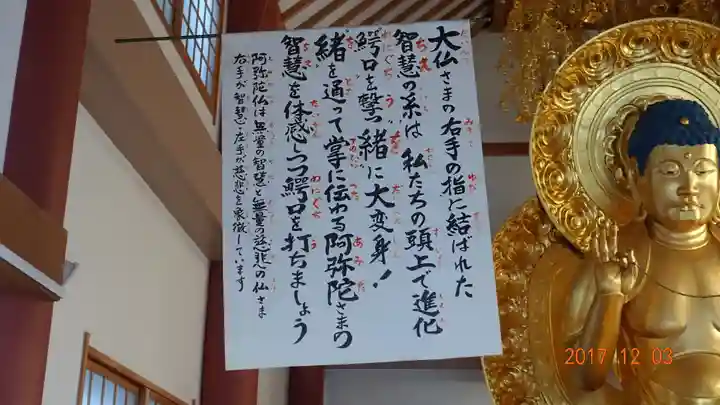 大仏さまの右手の指に結ばれた
智慧の糸は 私たちの頭上で進化
鰐口を撃つ"緒"に大変身!
緒を通って掌に伝わる阿弥陀さまの
智慧を体感しつつ鰐口を打ちましょう
阿弥陀仏は無量の智慧と無量の慈悲の仏さま
右手が智慧・左手が慈悲を象徴しています
2017 12 03